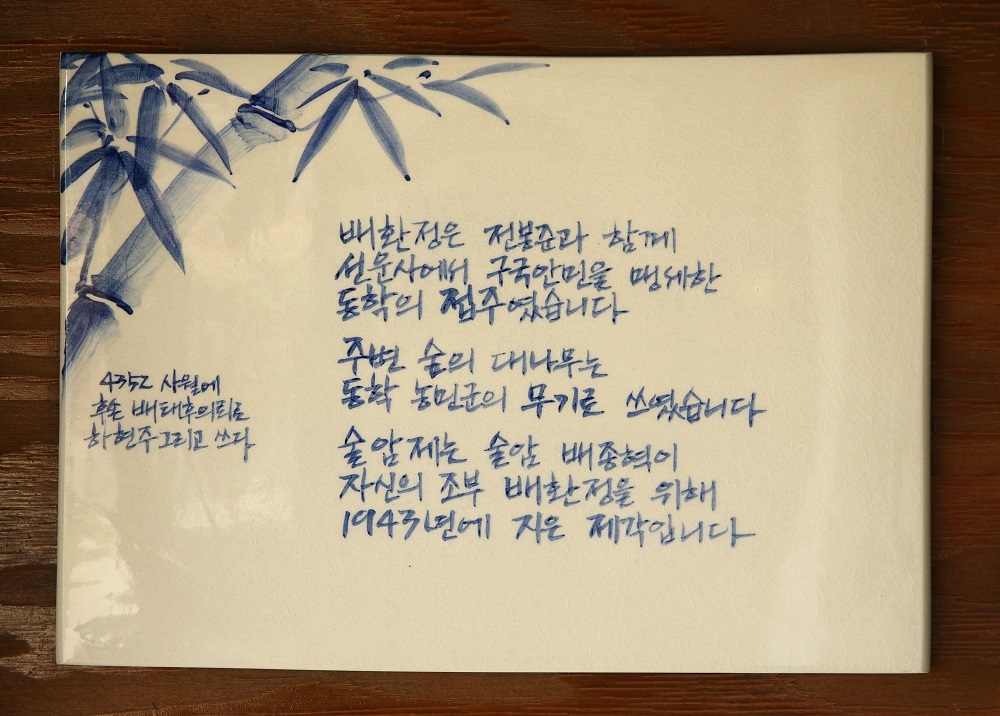 배환정은 전봉준과 함께
선운사에서 구국안민을 맹세한
동학의 접주였습니다
주변 숲의 대나무는
동학 농민군의 무기로 쓰였습니다
술암제는 술암 배종혁이
자신의 조부 배환정을 위해
1943년에 지은 제각입니다
4352 사월에
후손 배태후의뢰로
하현주그리고 쓰다